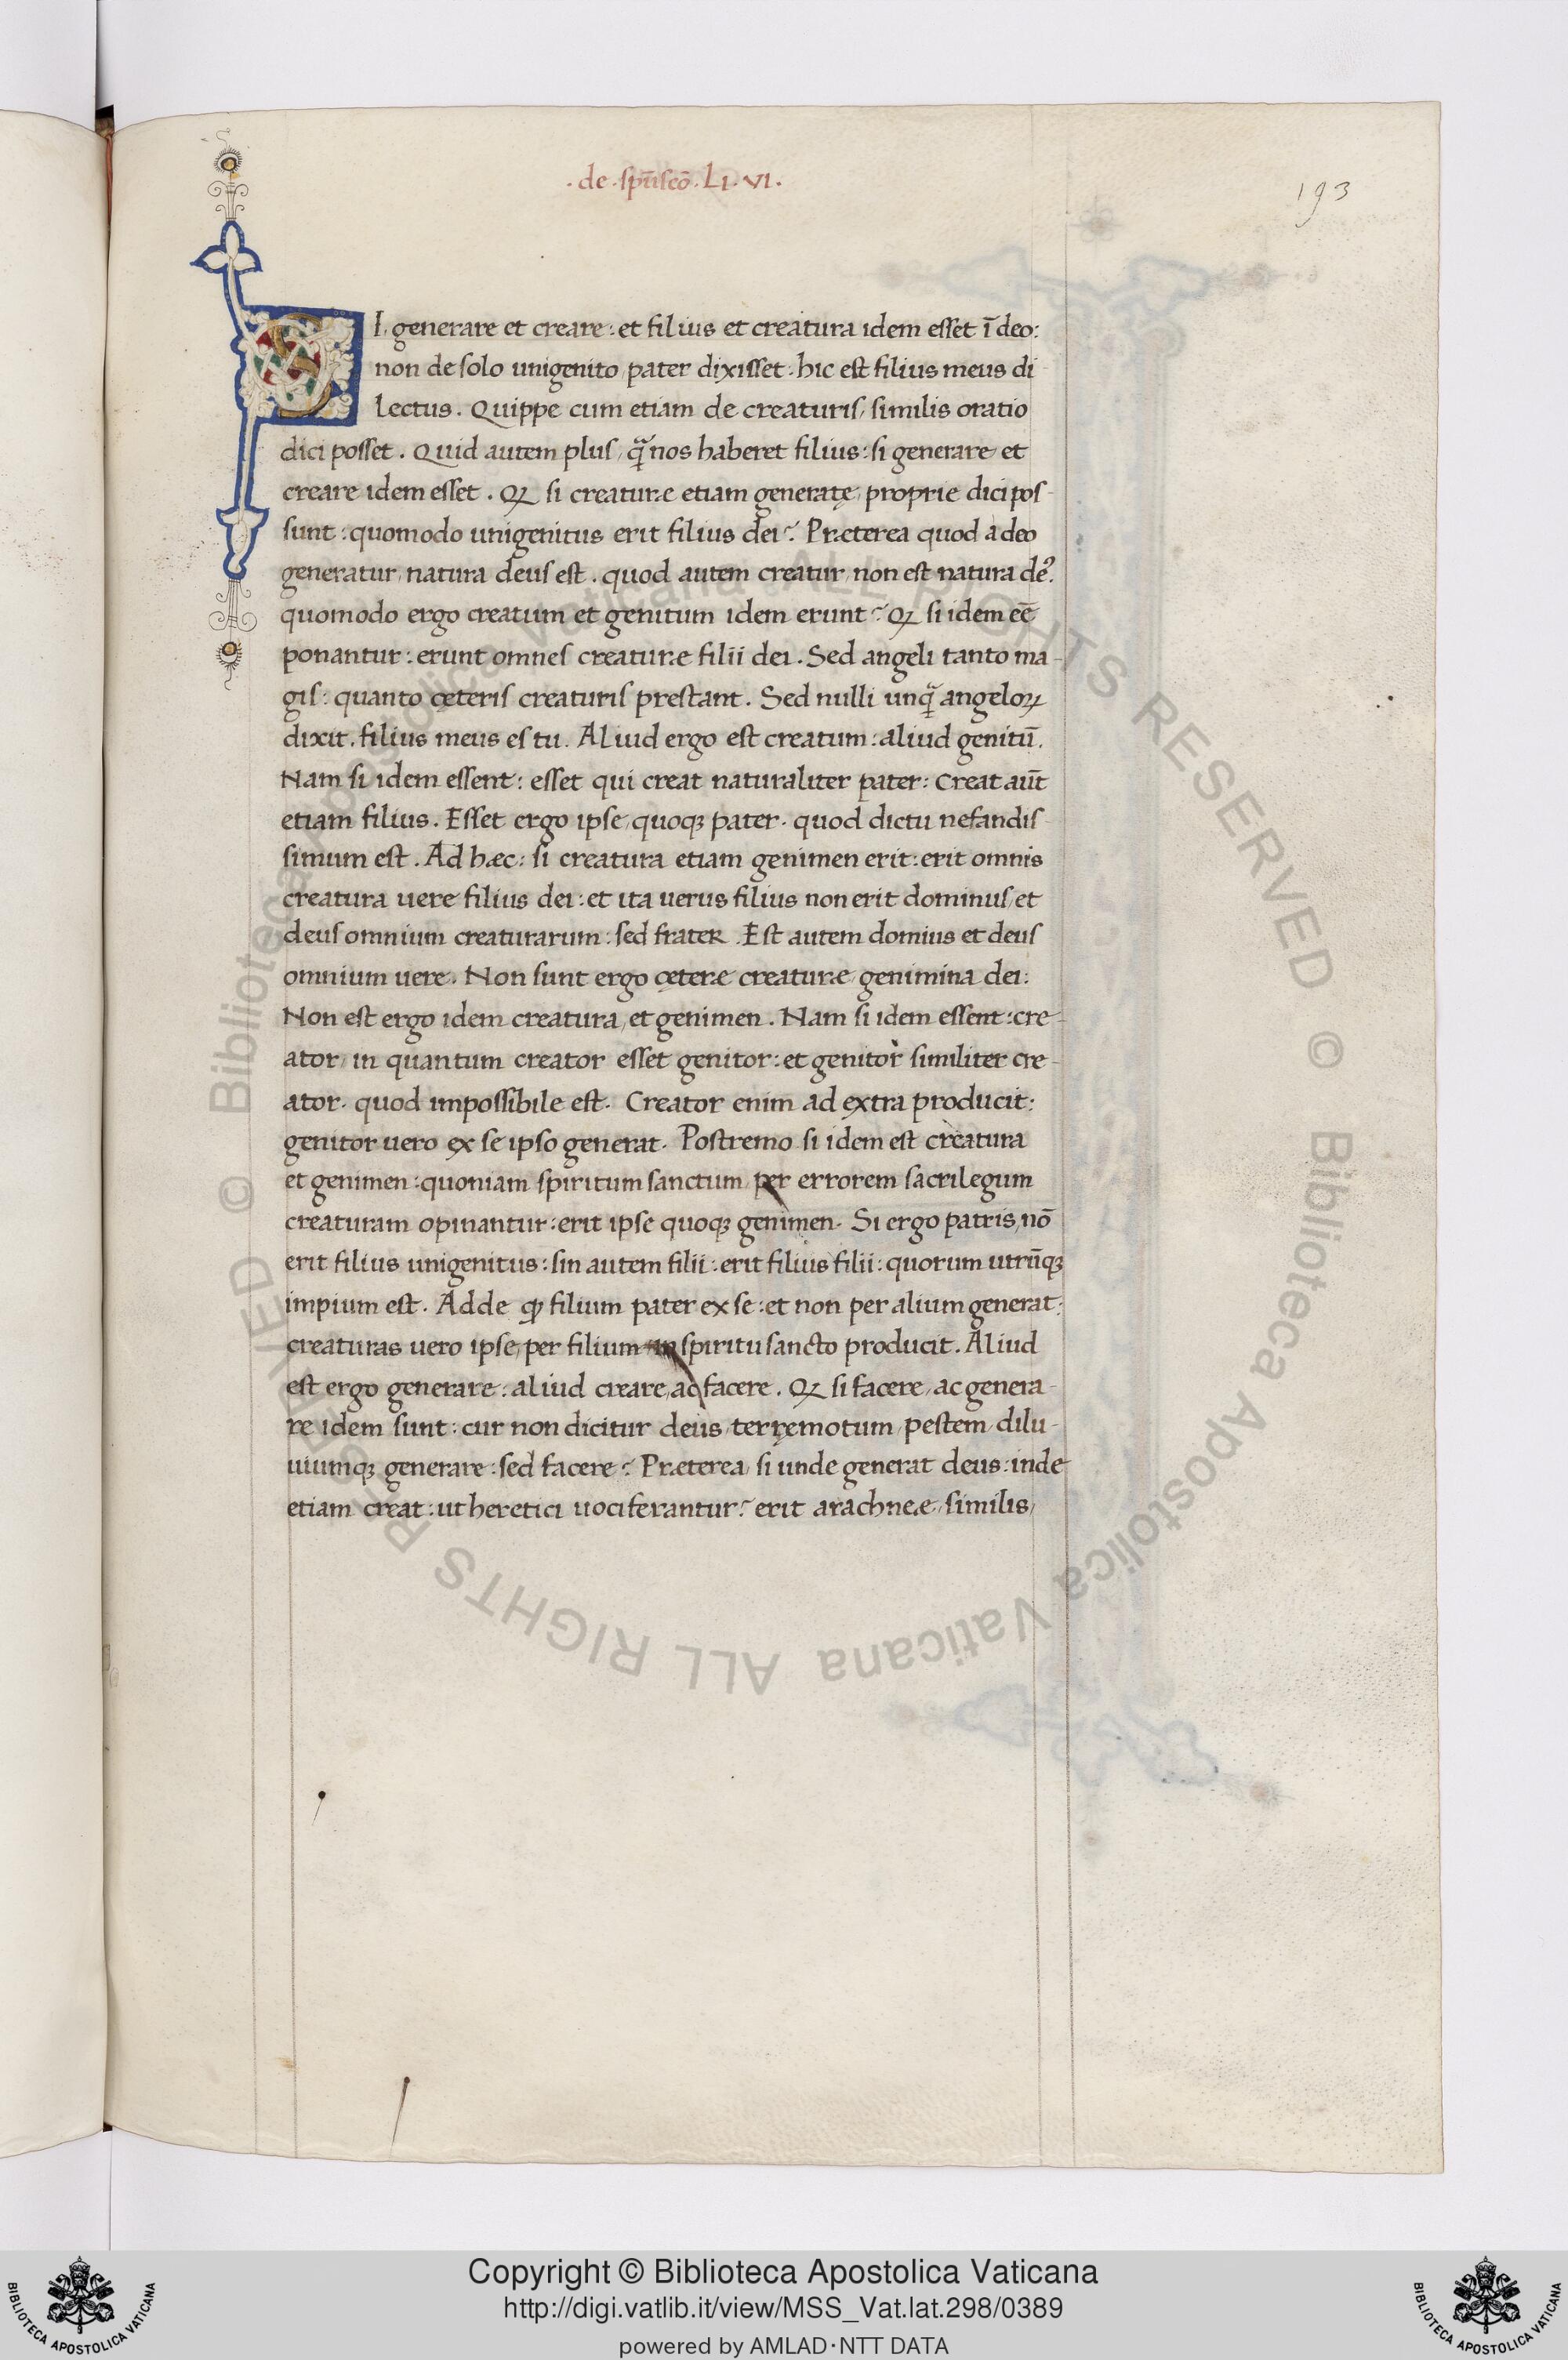 .de.sp̄uscō.LI.VI.
193
SI, generare et creare: et filius et creatura idem esset ī deo:
non de solo unigenito, pater dixisset. hic est filius meus di
lectus. Quippe cum etiam de creaturis, similis oratio
dici posset. Quid autem plus, q̃ nos haberet filius: si generare, et
creare idem esset. Qꝫ si creaturæ etiam generatę, proprie dici pos-
sunt: quomodo unigenitus erit filius dei? Præterea quod a deo
generatur, natura deus est. quod autem creatur, non est natura deꝰ.
quomodo ergo creatum et genitum idem erunt? Qꝫ si idem eē
ponantur: erunt omnes creaturæ filii dei. Sed angeli tanto ma-
gis: quanto cęteris creaturis prestant. Sed nulli unq̃ angeloꝝ
dixit. filius meus es tu. Aliud ergo est creatum: aliud genitū.
Nam si idem essent: esset qui creat naturaliter pater: Creat aūt
etiam filius. Esset ergo ipse, quoqꝫ pater. quod dictu nefandis-
simum est. Ad hæc: si creatura etiam genimen erit: erit omnis
creatura uere filius dei: et ita uerus filius non erit dominus, et
deus omnium creaturarum: sed frater. Est autem domius et deus
omnium uere. Non sunt ergo cęteræ creaturæ, genimina dei:
Non est ergo idem creatura, et genimen. Nam si idem essent: cre-
ator, in quantum creator esset genitor: et genitor similiter cre-
ator. quod impossibile est. Creator enim ad extra producit:
genitor uero ex se ipso generat. Postremo si idem est creatura
et genimen: quoniam spiritum sanctum, per errorem sacrilegum
creaturam opinantur: erit ipse quoqꝫ genimen. Si ergo patris, nō
erit filius unigenitus: sin autem filii: erit filius filii: quorum utrūqꝫ
impium est. Adde ꝙ filium pater ex se: et non per alium generat:
creaturas uero ipse, per filium in spiritu sancto producit. Aliud
est ergo generare: aliud creare, ac facere. Qꝫ si facere, ac genera-
re idem sunt: cur non dicitur deus, terręmotum, pestem, dilu-
uiumqꝫ generare: sed facere? Præterea, si unde generat deus: inde
etiam creat: ut heretici uociferantur? erit arachneæ, similis,
© Biblioteca Apostolica Vaticana ALL RIGHTS RESERVED © Biblioteca Apostolica Vaticana ALL RIGHTS RESERVED
Copyright © Biblioteca Apostolica Vaticana
http://digi.vatlib.it/view/MSS_Vat.lat.298/0389
powered by AMLAD·NTT DATA
BIBLIOTECA APOSTOLICA VATICANA
BIBLIOTECA APOSTOLICA VATICANA